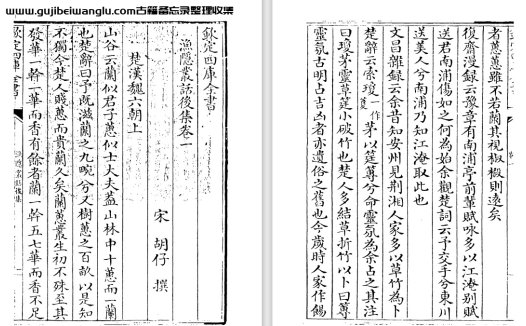 www.gujibeiwanglu.com古籍备忘录整理收集
欽定四庫全書
漁隱叢話後集卷一
宋 胡仔 撰
楚漢魏六朝上
山谷云蘭似君子蕙似士大夫蓋山林中十蕙而一蘭
也楚辭曰予既滋蘭之九畹兮又樹蕙之百畝以是知
不獨今楚人賤蕙而貴蘭久矣蘭蕙叢生初不殊至其
發華一幹一華而香有餘者蘭一幹五七華而香不足
者蕙蕙雖不若蘭其視椒榝則遠矣
復齋漫錄云豫章有南浦亭前輩賦咏多以江淹别賦
送君南浦傷如之何為始余觀楚詞云予交手兮東川
送美人兮南浦乃知江淹取此也
文昌雜録云余昔知安州見荆湘人家多以草竹為卜
楚辭云索瓊一作茅以筳篿兮命靈氛為余占之其注
曰瓊茅靈草筳小破竹也楚人多結草折竹以卜曰篿
靈氛古明占吉凶者亦遺俗之舊也今歲時人家作餳